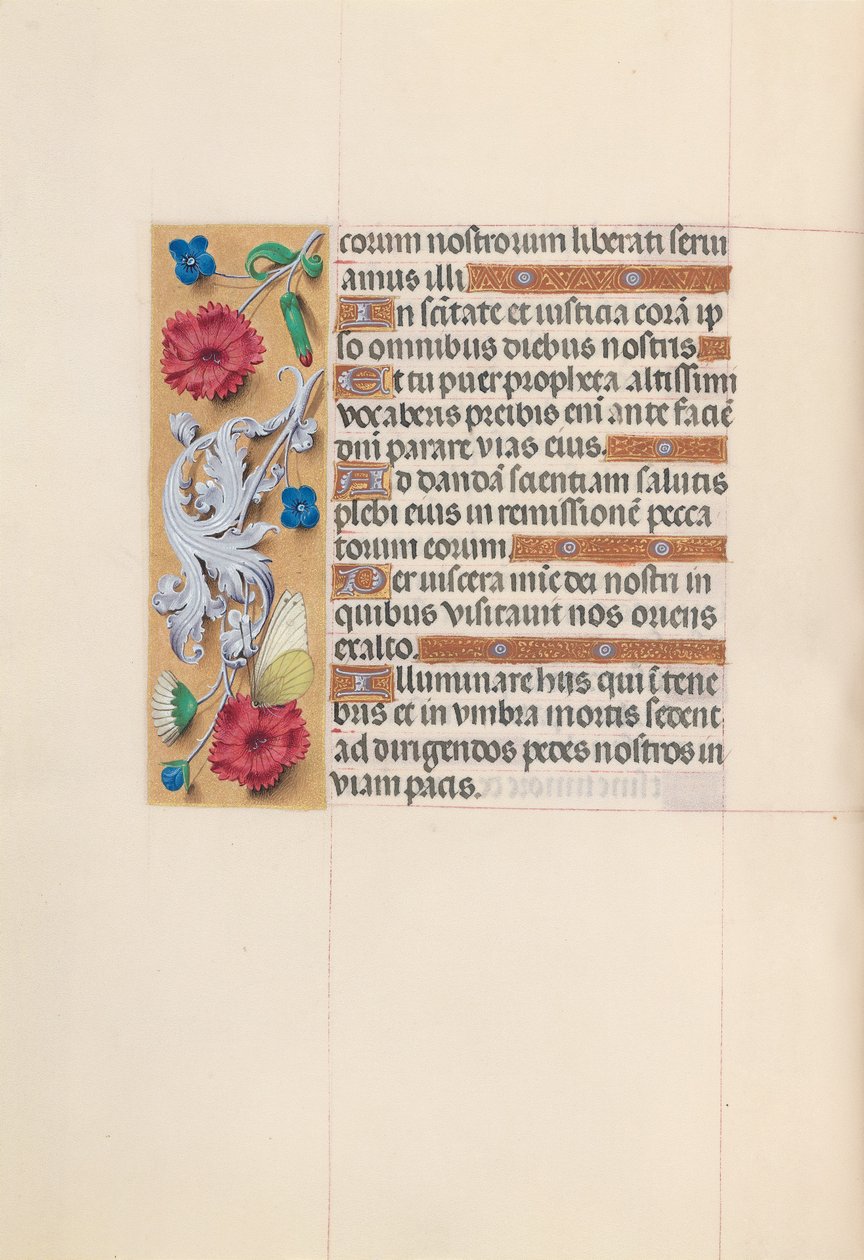 corum nostrorum liberati serui
amus illi
In scītate et iusticia corā ip
so omnibus diebus nostris
Et tu puer propheta altissimi
vocaberis preibis eni ante faciē
dni parare vias eius.
Ad dandā scientiam salutis
plebi eius in remissionē pecca
torum eorum
Per viscera mīe dei nostri in
quibus visitauit nos oriens
exalto.
Illuminare hijs qui ī tene
bris et in vmbra mortis sedent
ad dirigendos pedes nostros in
viam pacis.